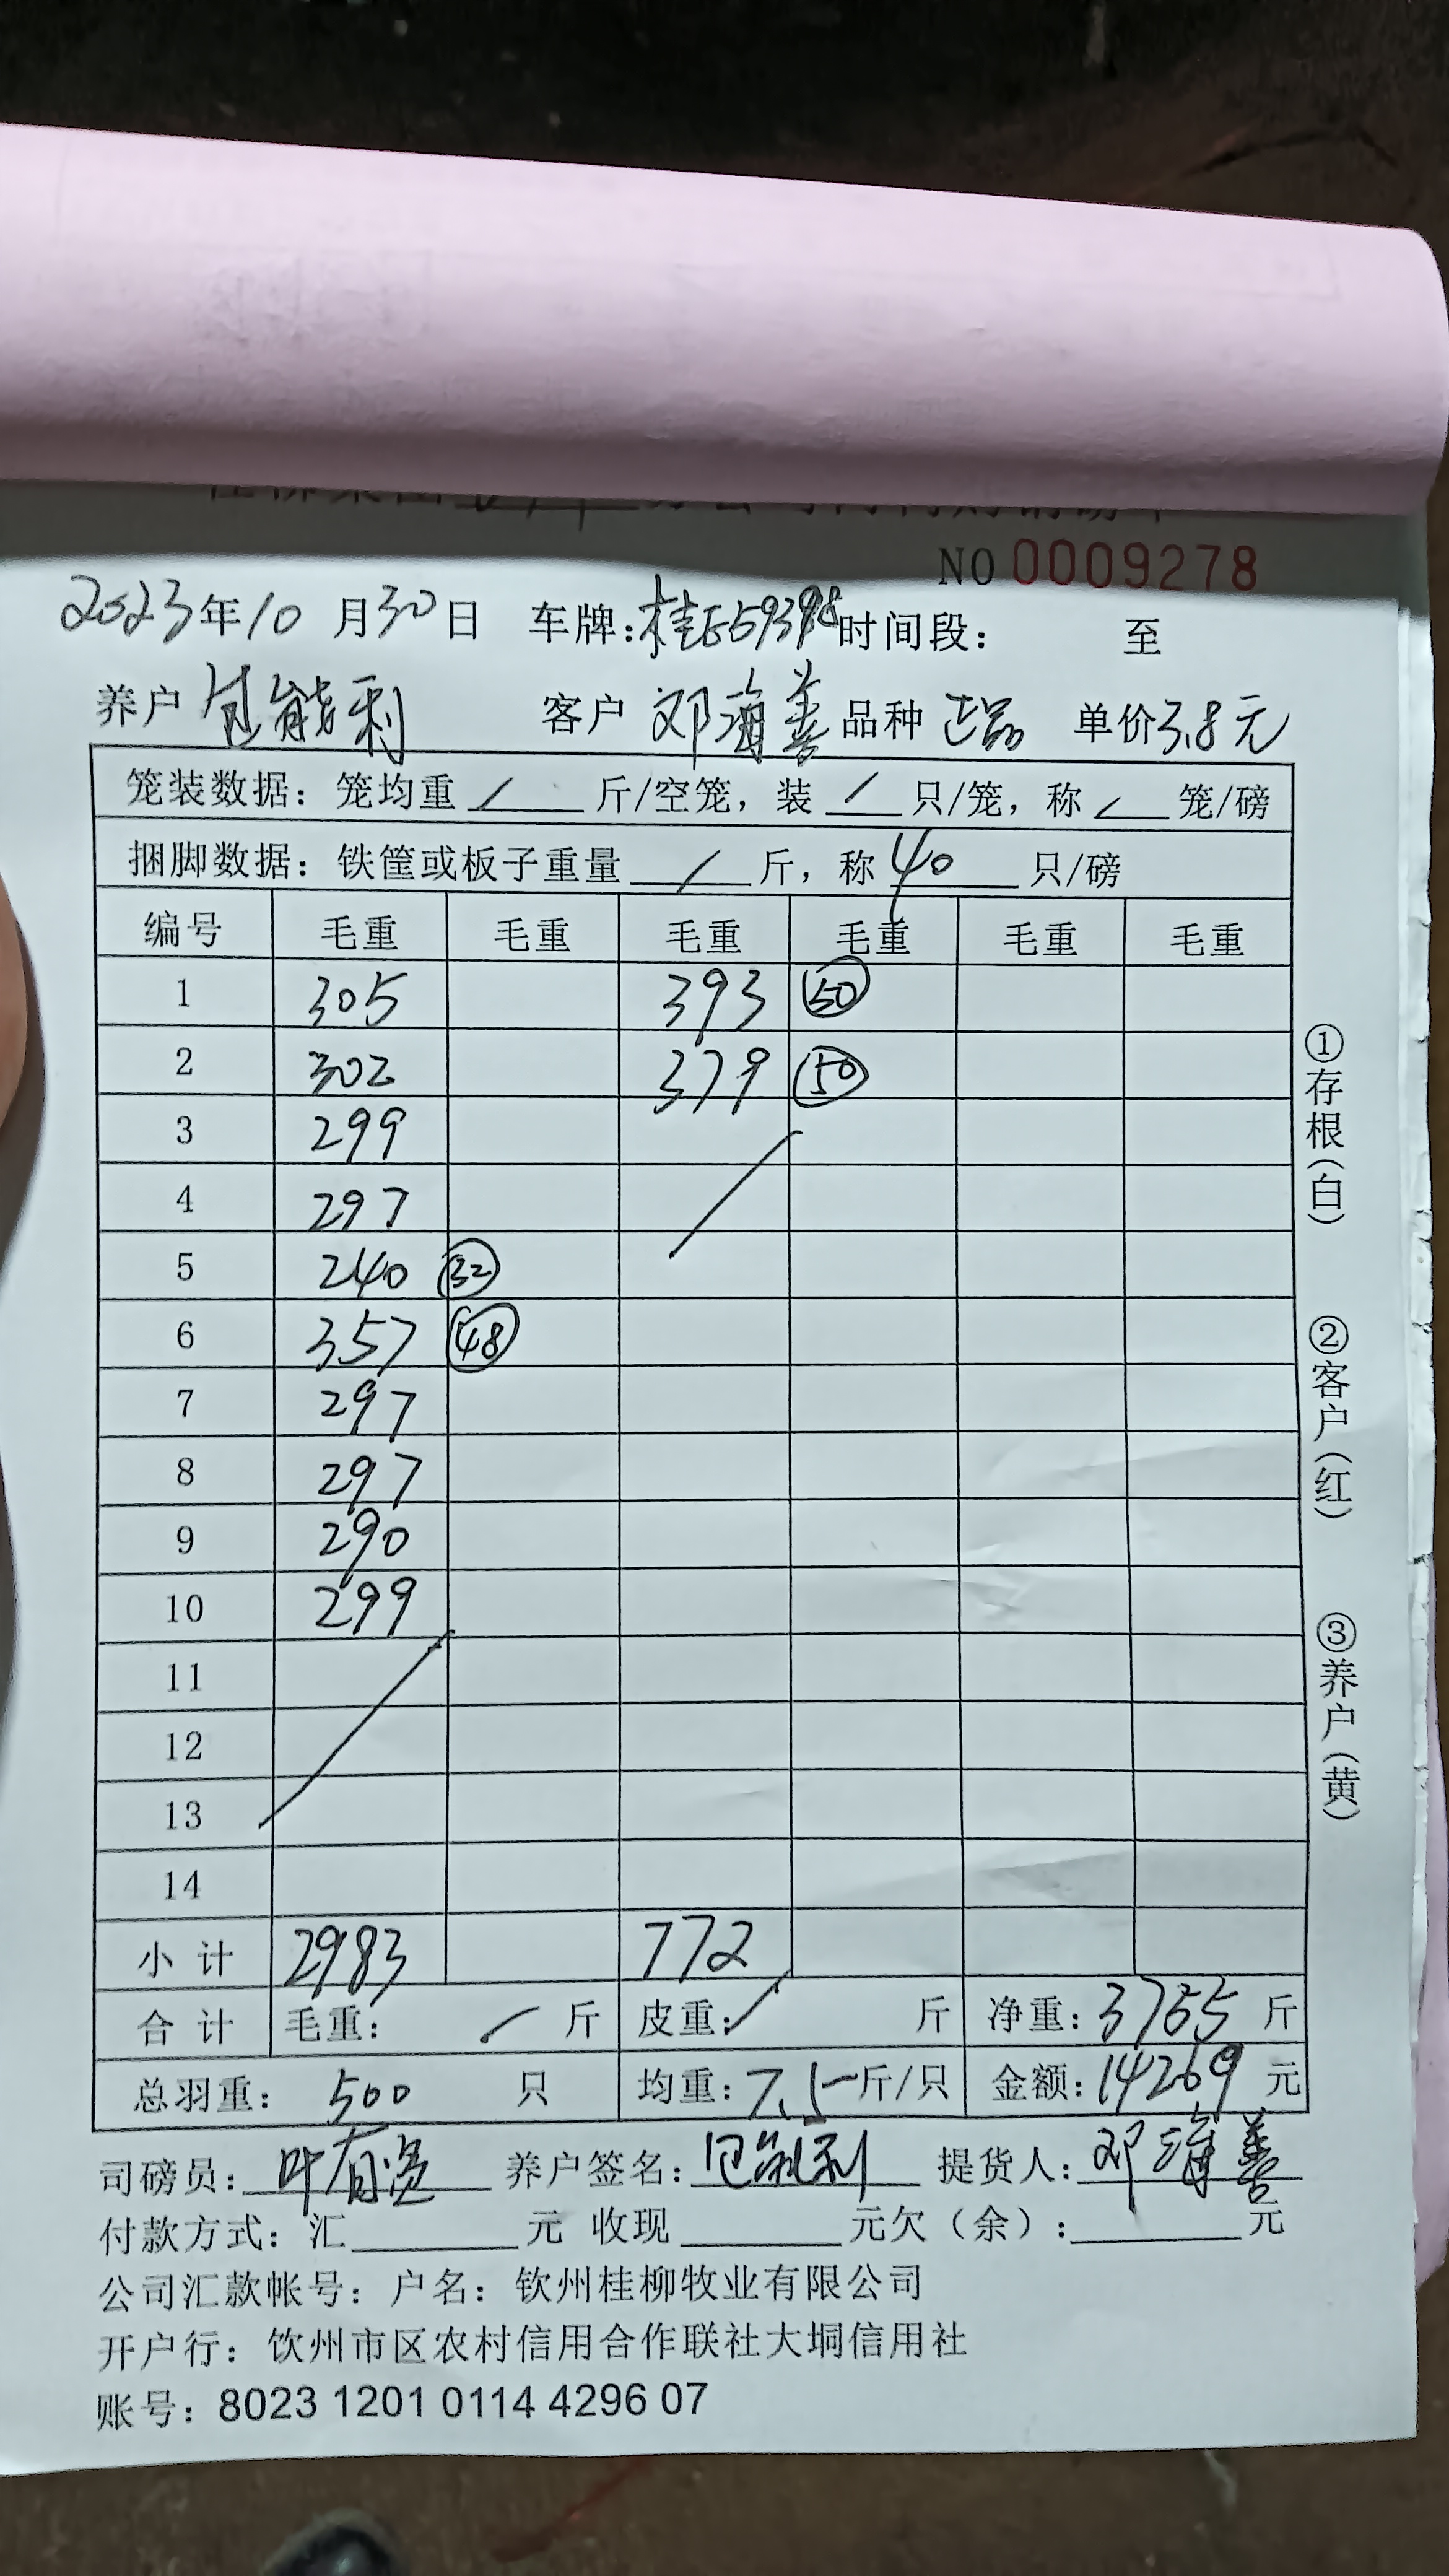 NO 0009278
2023年10月30日 车牌: 时间段: 至
养户 包能利 客户 邓海善 品种 正品 单价3.8元
笼装数据: 笼均重 / 斤/空笼, 装 / 只/笼, 称 / 笼/磅
捆脚数据: 铁筐或板子重量 / 斤, 称 40 只/磅
编号 毛重 毛重 毛重 毛重 毛重 毛重
1 305 393 50
2 302 379 50
3 299
4 297
5 240 32
6 357 48
7 297
8 297
9 290
10 299
11
12
13
14
小计 2983 772
合计 毛重: / 斤 皮重: / 斤 净重: 3755 斤
总羽重: 500 只 均重: 7.5 斤/只 金额: 14269 元
司磅员: 叶有 养户签名: 包能利 提货人: 邓海善
付款方式: 汇 元 收现 元欠(余): 元
公司汇款帐号: 户名: 钦州桂柳牧业有限公司
开户行: 钦州市区农村信用合作联社大垌信用社
账号: 8023 1201 0114 4296 07
①存根(白)
②客户(红)
③养户(黄)